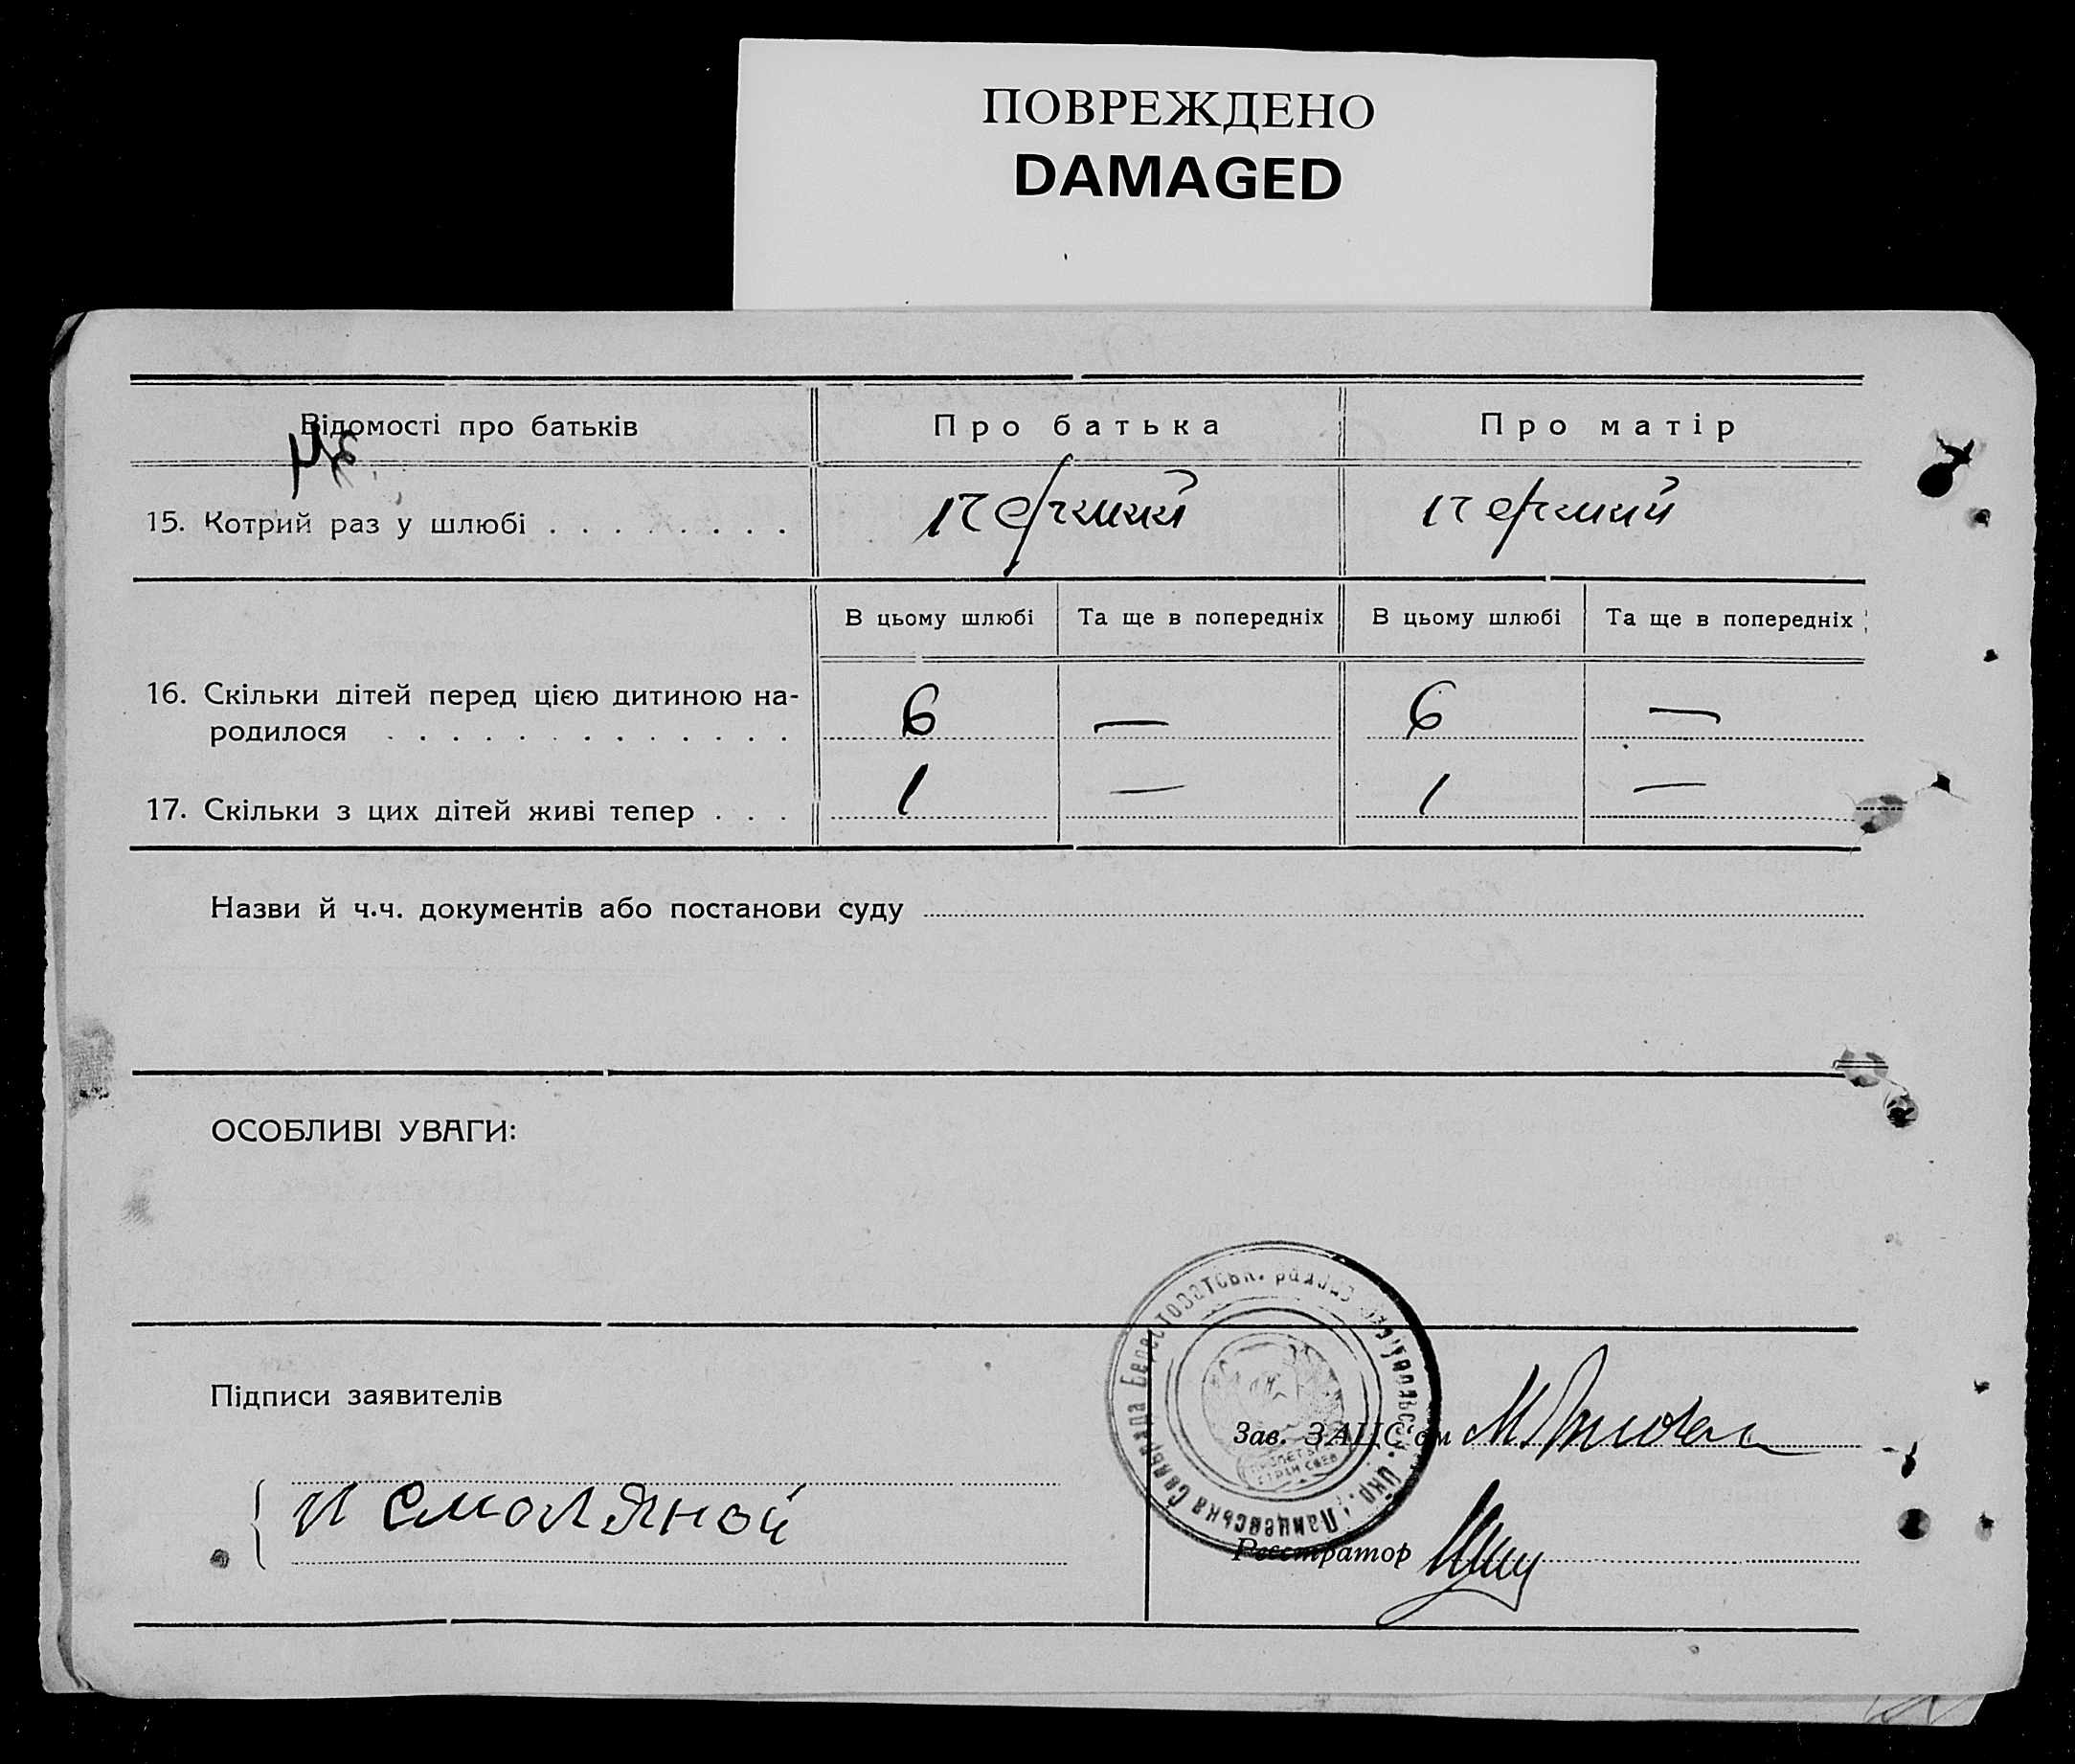 ПОВРЕЖДЕНО
DAMAGED
Відомості про батьків
Про батька
Про матір
15. Котрий раз у шлюбі . . . . . . . .
перший
перший
В цьому шлюбі
Та ще в попередніх
В цьому шлюбі
Та ще в попередніх
16. Скільки дітей перед цією дитиною на-
родилося . . . . . . . . . . . . .
6
—
6
—
17. Скільки з цих дітей живі тепер . . .
1
—
1
—
Назви й ч.ч. документів або постанови суду
ОСОБЛИВІ УВАГИ:
Підписи заявителів
Зав. ЗАЦС'ом
И Смоляной
Реєстратор
Сільрада Берестоватськ.